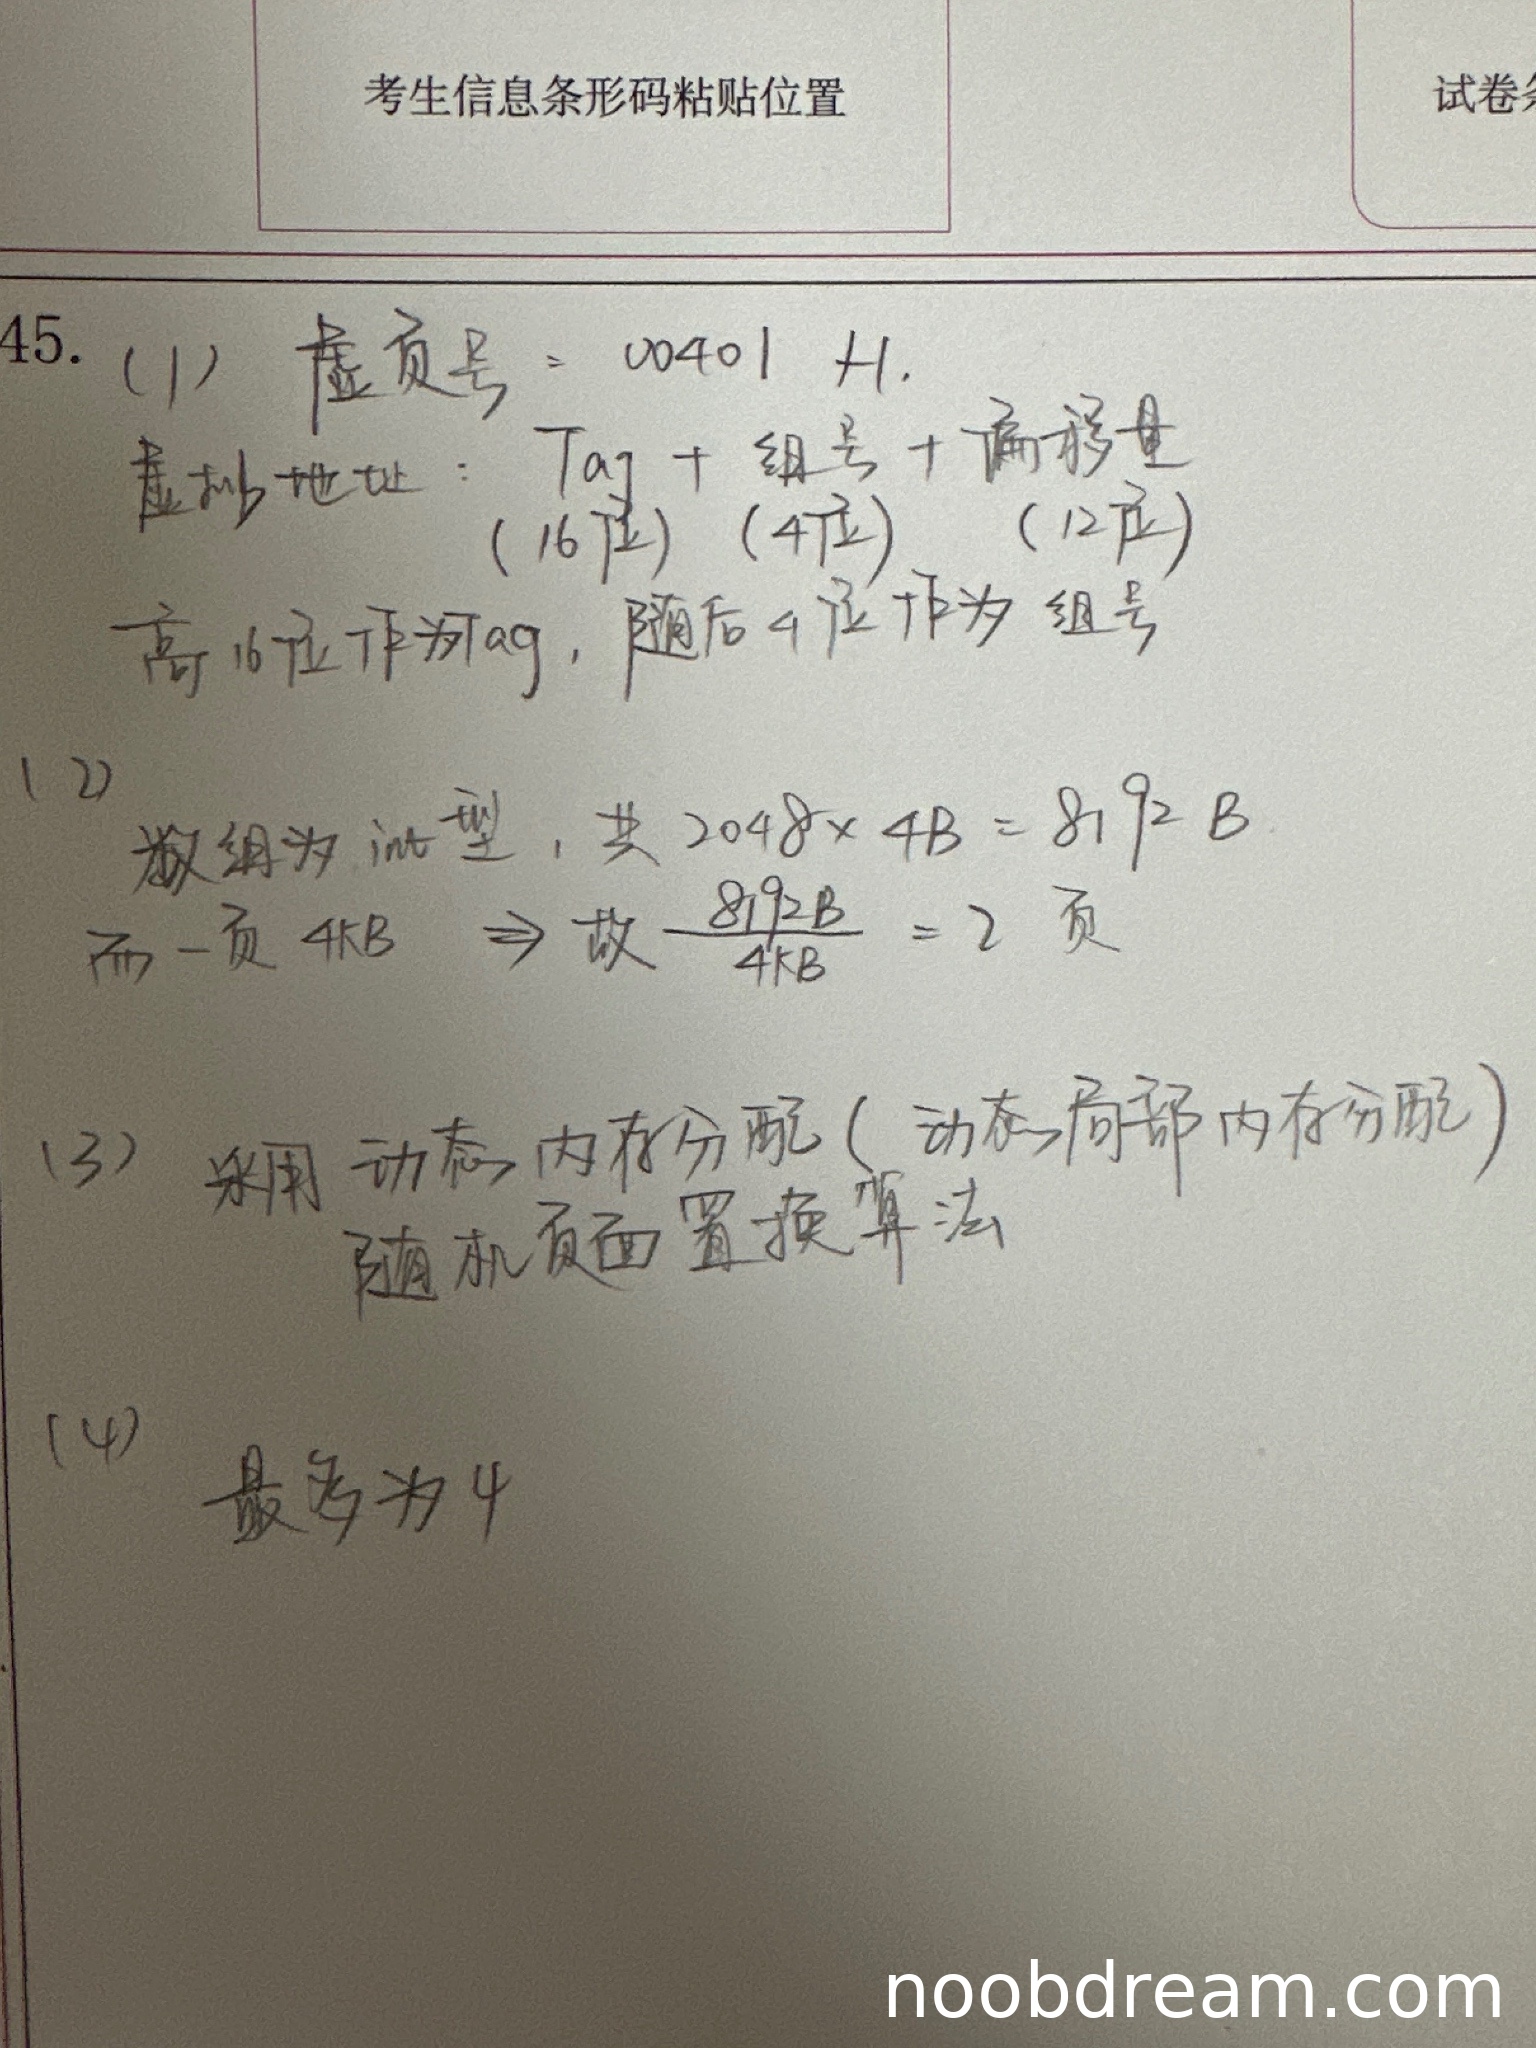 考生信息条形码粘贴位置
试卷条
45. (1) 虚页号 = 00401 H.
虚拟地址: Tag + 组号 + 偏移量
(16位) (4位) (12位)
高16位作为Tag, 随后4位作为 组号
(2)
数组为 int型, 共 2048 × 4B = 8192 B
而一页 4KB ⇒ 故 8192B/4KB = 2 页
(3) 采用 动态内存分配 (动态局部内存分配)
随机页面置换算法
(4)
最多为 4
noobdream.com